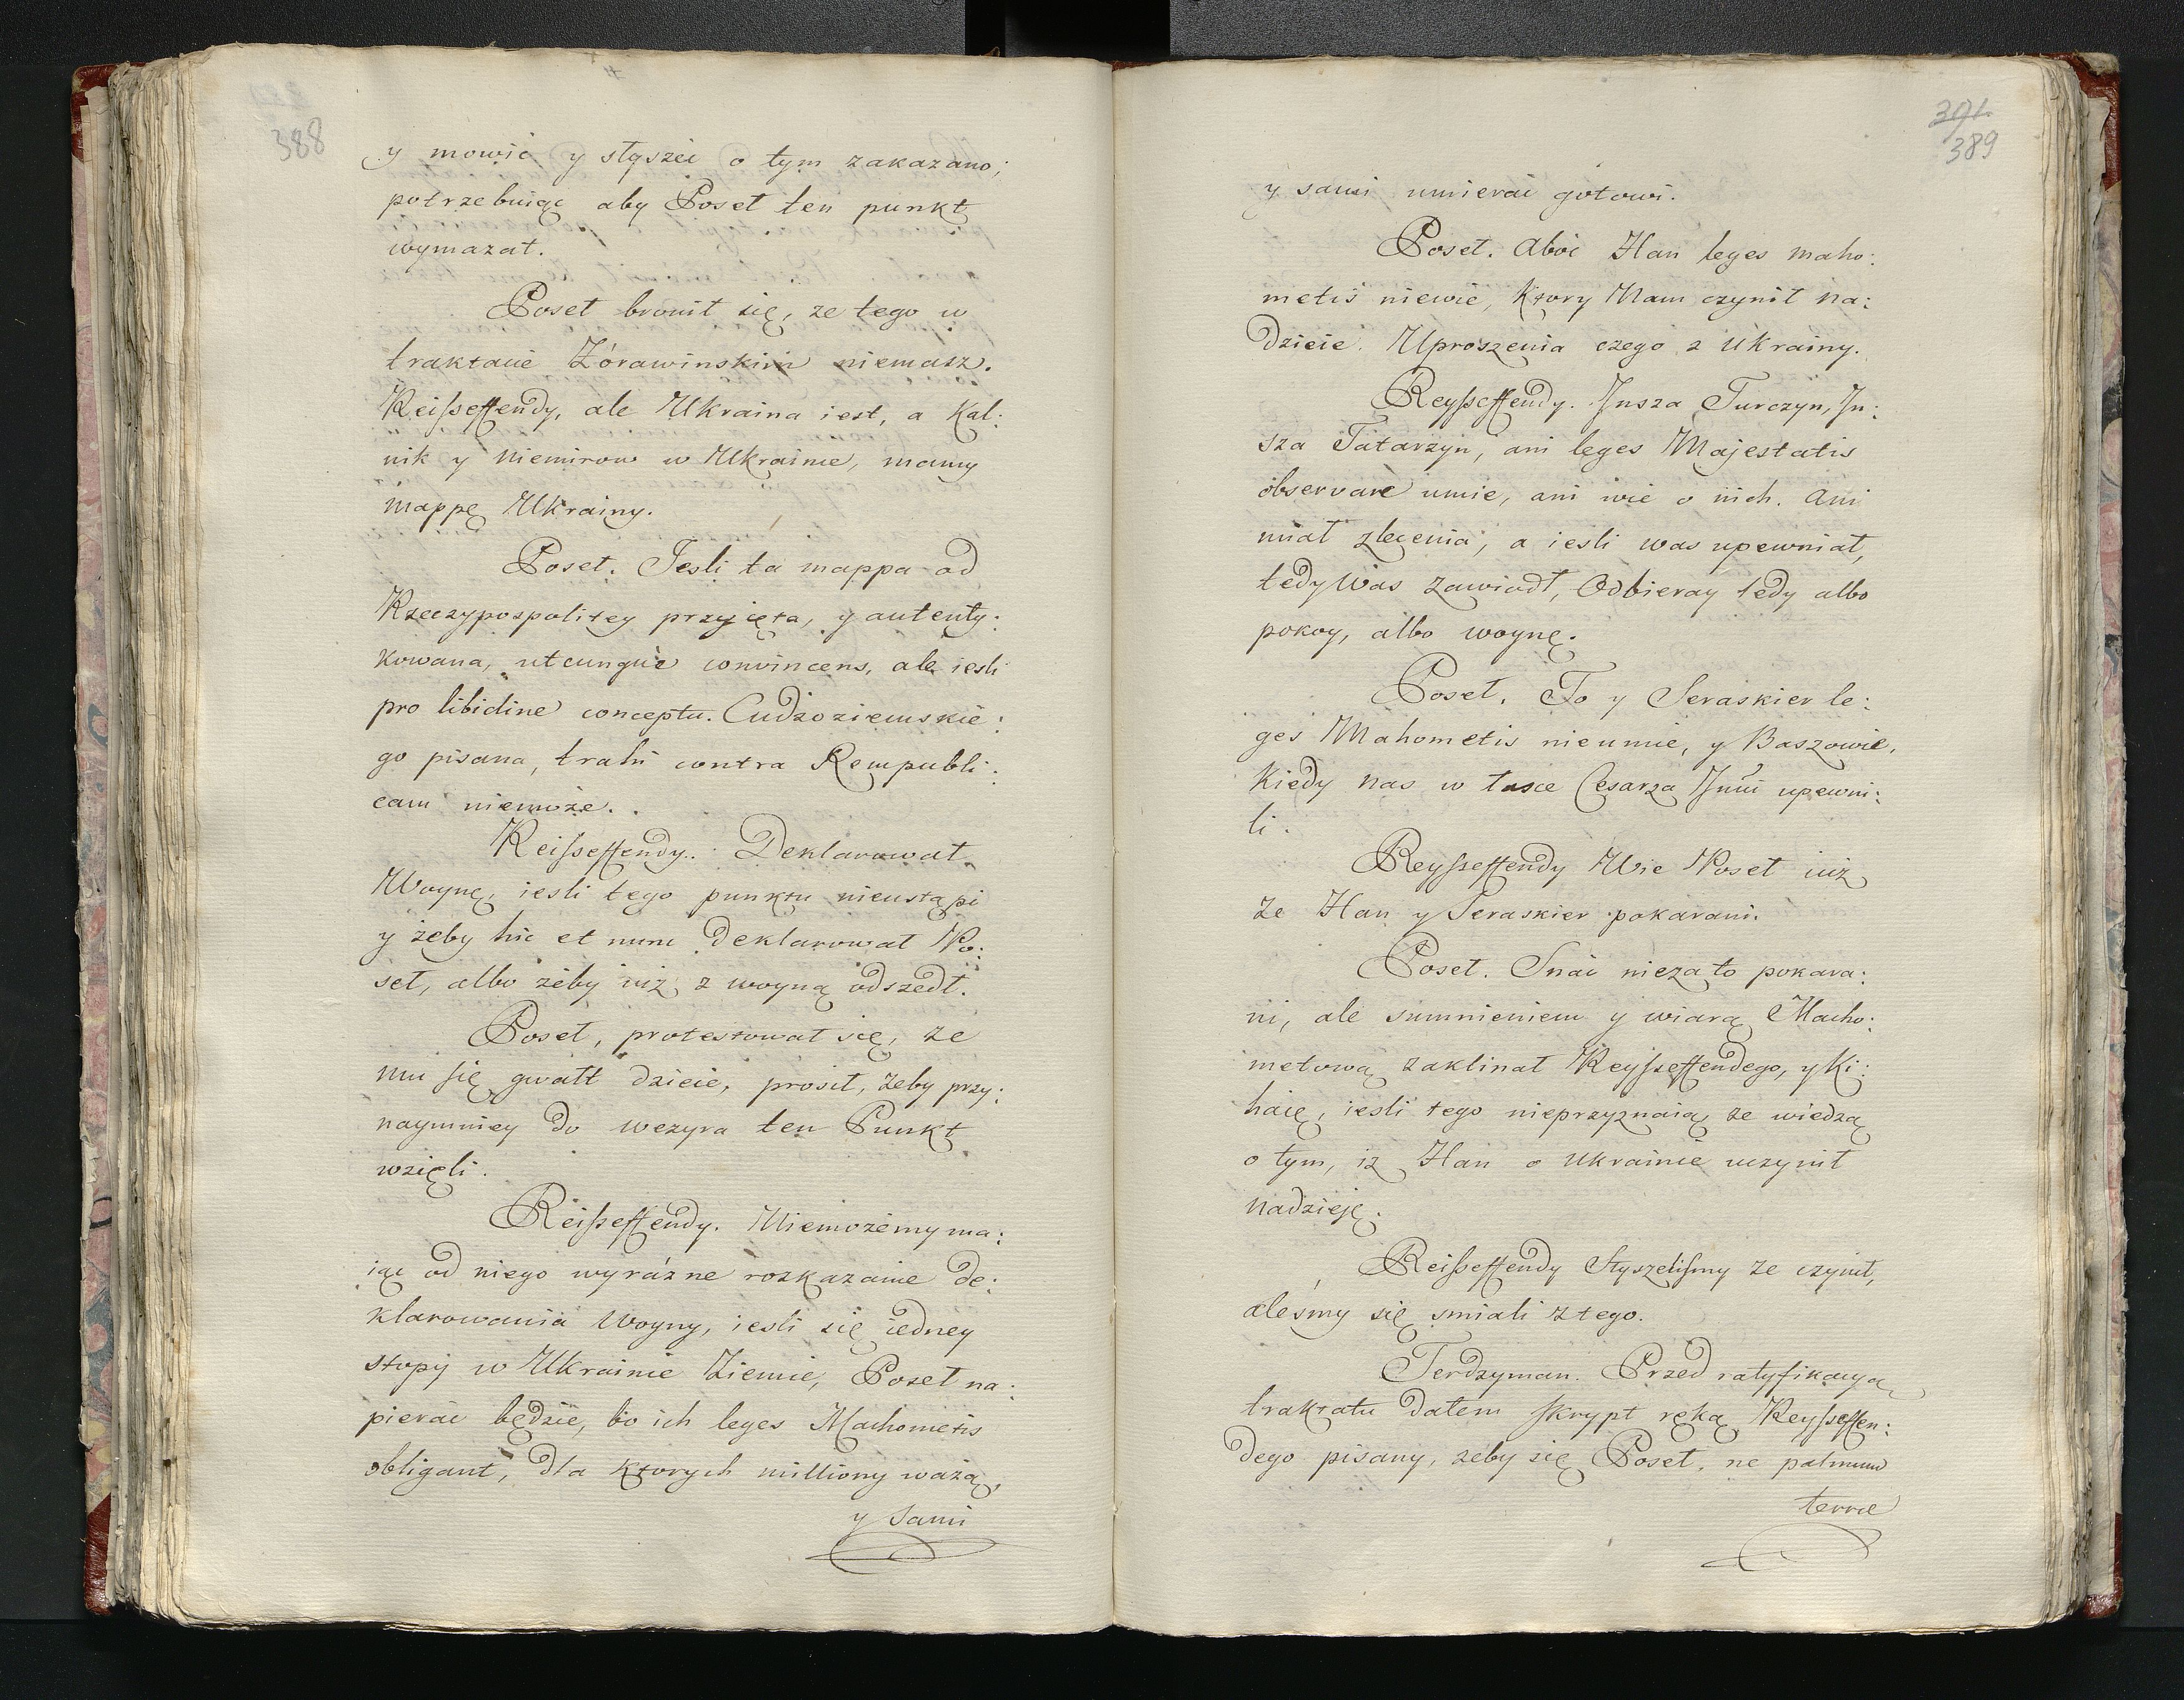 388
y mowić y słyszeć o tym zakazano;
potrzebuiąc aby Poseł ten punkt
wymazał.
Poseł bronił się, ze tego w
traktacie Żórawinskim niemasz.
Reiſseffendy, ale Ukraina iest, a Kal:
nik y Niemirow w Ukrainie, mamy
mappę Ukrainy.
Poseł. Jesli ta mappa od
Rzeczypospolitey przyięta, y autenty:
kowana, utcunque convincens, ale iesli
pro libidine conceptu Cudzoziemskie:
go pisana, trahi contra Rempubli:
cam niemoże.
Reiſseffendy. Deklarował
Woynę, iesli tego punktu nieustąpi
y żeby hic et nunc deklarował Po:
seł, albo żeby iuż z woyną odszedł.
Poseł, protestował się, ze
mu się gwałt dzieie, prosił, żeby przy:
naymniey do wezyra ten Punkt
wzięli.
Reiſseffendy. Niemożemy ma:
iąc od niego wyráżne rozkazanie de:
klarowania Woyny, iesli się iedney
stopy w Ukrainie Ziemie, Poseł na:
pierać będzie, bo ich leges Machometis
obligant, dla ktorych milliony ważą,
y sami
391.
389
y sami umierać gotowi.
Poseł. Aboć Han leges maho:
metis niewie, Ktory Nam czynił na:
dzieie Uproszenia czego z Ukrainy.
Reyſseffendy. Jnsza Turczyn, Jn:
sza Tatarzyn, ani leges Majestatis
observare umie, ani wie o nich. Ani
miał zlecenia, a iesli was upewniał,
tedy Was zawiodł, Odbieray tedy albo
pokoy, albo woynę.
Poseł. To y Seraskier le:
ges Mahometis nieumie, y Baszowie,
Kiedy nas w łasce Cesarza Jmći upewni:
li.
Reyſseffendy Wie Poseł iuż
że Han y Seraskier pokarani.
Poseł. Snać niezato pokara:
ni, ale sumnieniem y wiarą Macho:
metową zaklinał Reyſseffendego, y Ki:
haię, iesli tego nieprzyznaią, ze wiedzą
o tym, iż Han o Ukrainie uczynił
nadzieję.
Reiſseffendy Słyszeliſmy ze czynił,
aleśmy się smiali z tego.
Terdzyman. Przed ratyfikacyą
traktatu dałem skrypt ręką Reyſseffen:
dego pisany, żeby się Poseł, ne palmum
terræ